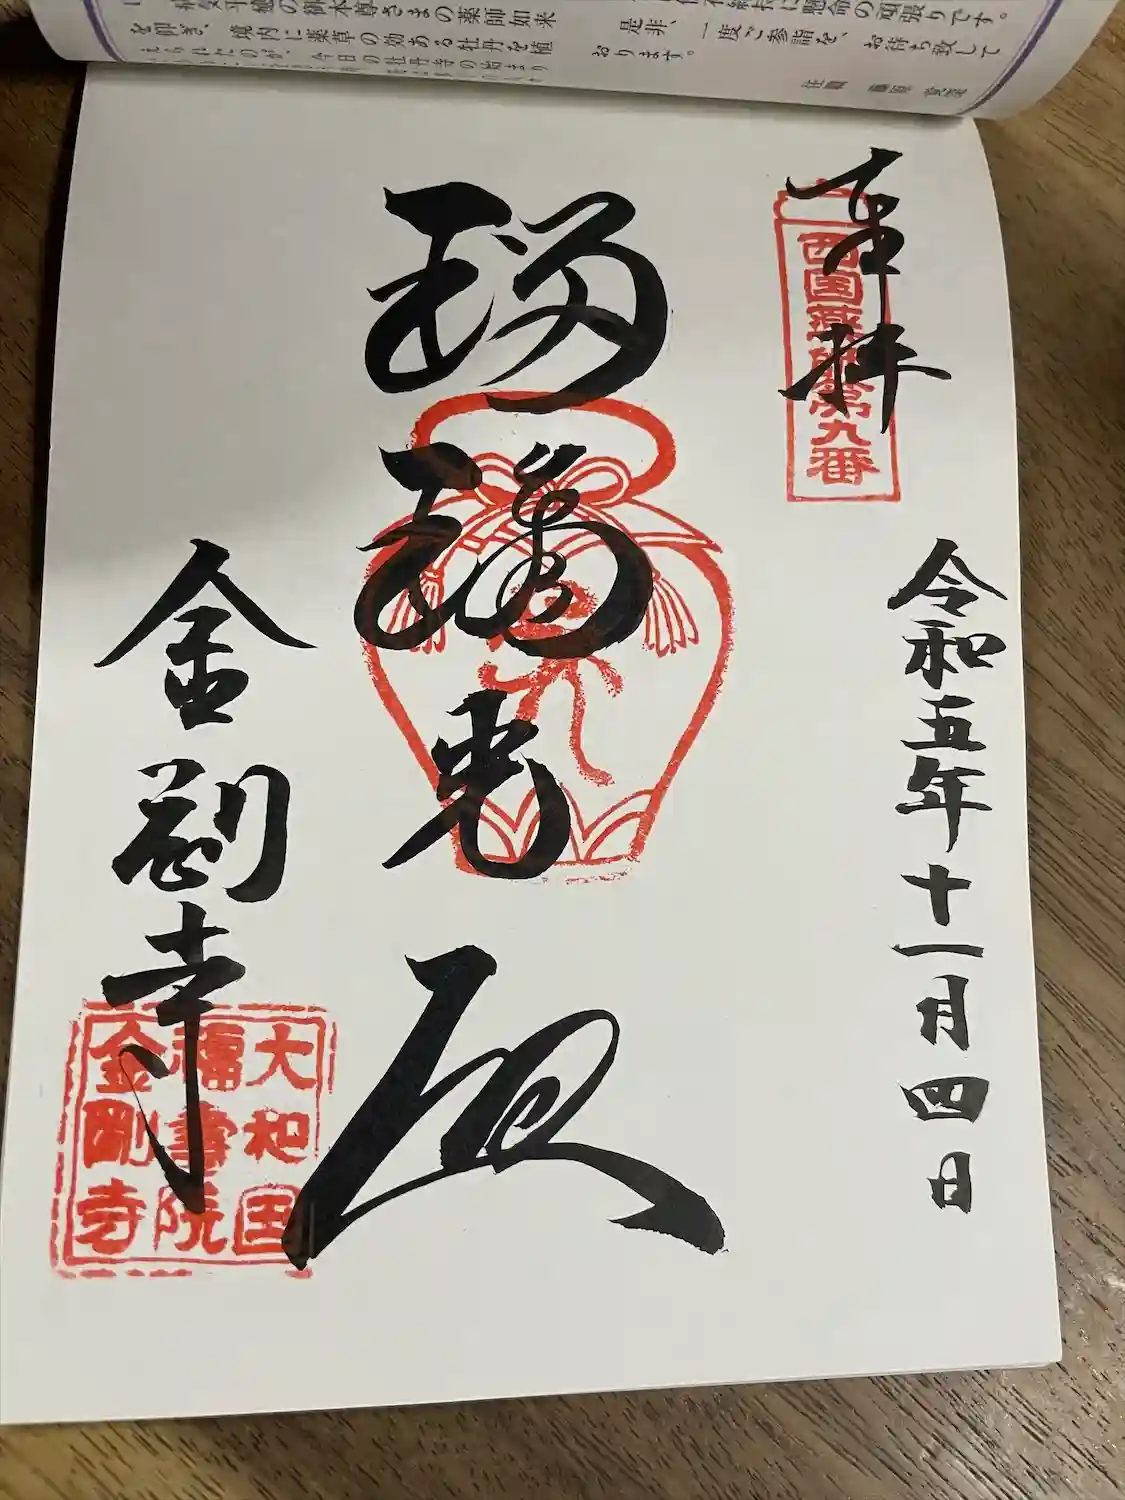 病気平癒の御本尊さまの薬師如来
を仰ぎ、境内に薬草の効ある牡丹を植
えられたのが、今日の牡丹寺の始まり
懸命の頑張りです。
是非、一度ご参詣を、お待ち致して
おります。
奉拝
西国薬師第九番
令和五年十一月四日
瑠璃光殿
金剛寺
大和国
福寿院
金剛寺